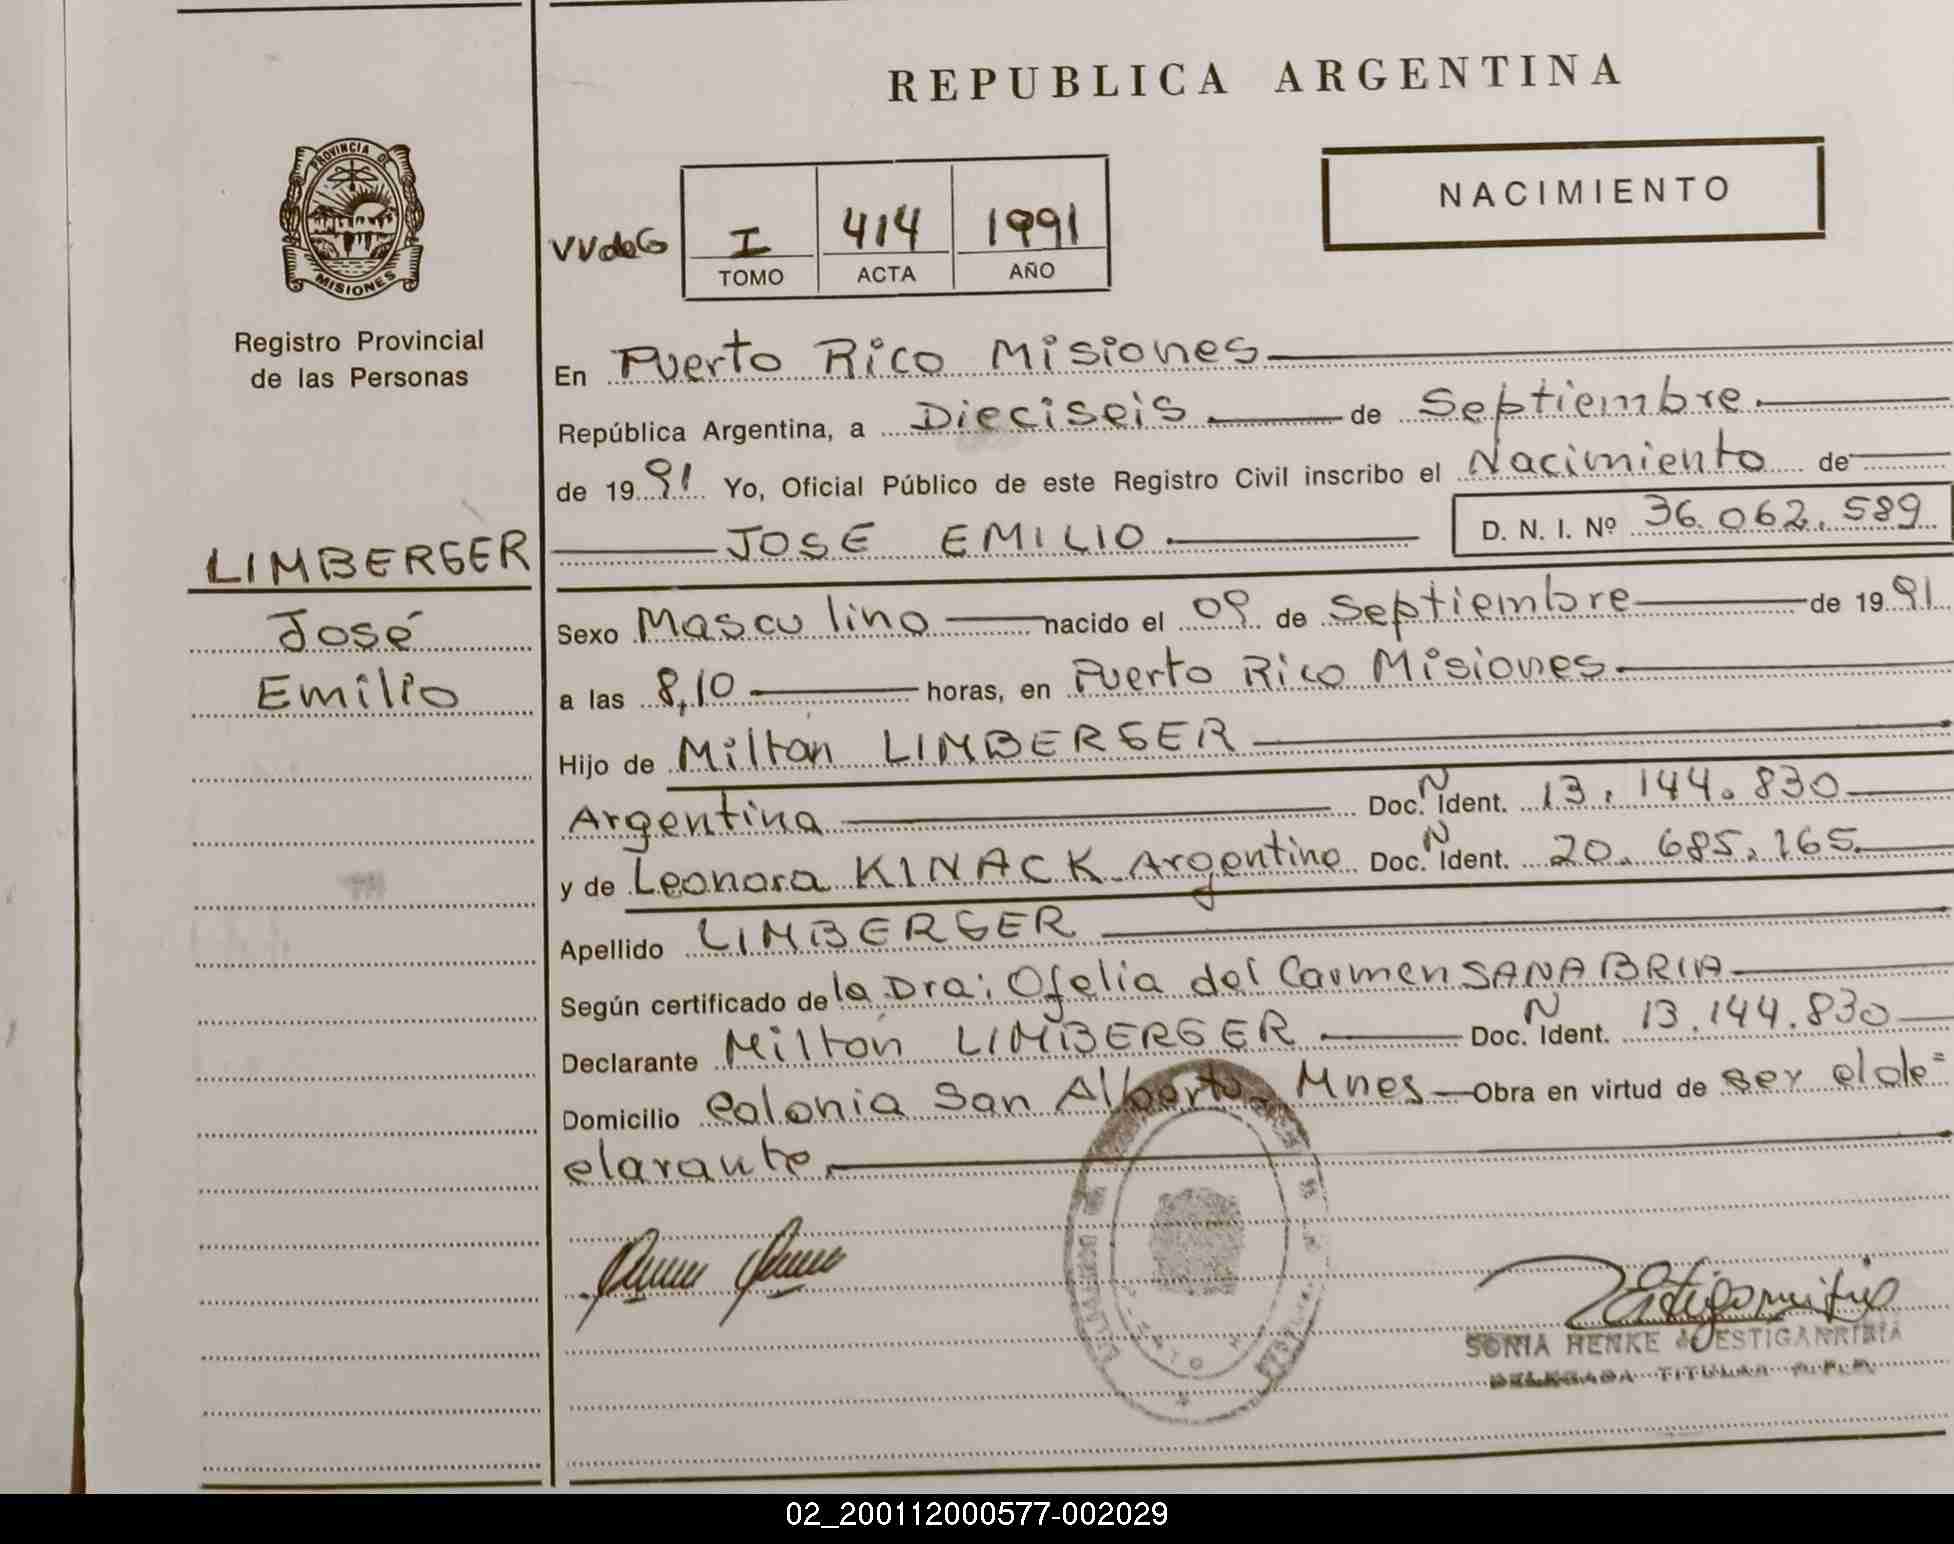 REPUBLICA ARGENTINA
NACIMIENTO
PROVINCIA DE
MISIONES
Registro Provincial
de las Personas
VVdeG
I 414 1991
TOMO ACTA AÑO
En Puerto Rico Misiones
República Argentina, a Dieciseis de Septiembre
de 1991 Yo, Oficial Público de este Registro Civil inscribo el Nacimiento de
JOSE EMILIO D. N. I. Nº 36.062.589
LIMBERGER
José
Emilio
Sexo Masculino nacido el 09 de Septiembre de 1991
a las 8,10 horas, en Puerto Rico Misiones
Hijo de Milton LIMBERGER
Argentina Doc. N Ident. 13.144.830
y de Leonora KINACK Argentina Doc. N Ident. 20.685.165
Apellido LIMBERGER
Según certificado de la Dra: Ofelia del Carmen SANABRIA
Declarante Milton LIMBERGER Doc. N Ident. 13.144.830
Domicilio Colonia San Alberto Mnes Obra en virtud de ser el de=
clarante
SONIA HENKE de ESTIGARRIBIA
DELEGADA TITULAR
02_200112000577-002029